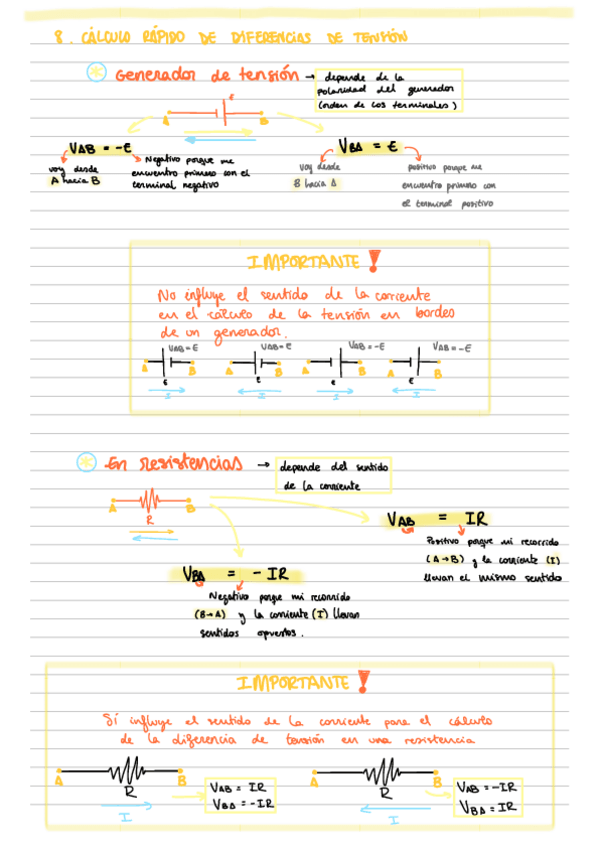 8. CÁLCULO RÁPIDO DE DIFERENCIAS DE TENSIÓN
Generador de tensión → depende de la
polaridad del generador
(orden de los terminales)
ε
A B
VAB = -ε
voy desde
A hacia B
Negativo porque me
encuentro primero con el
terminal negativo
VBA = ε
voy desde
B hacia A
positivo porque me
encuentro primero con
el terminal positivo
IMPORTANTE !
No influye el sentido de la corriente
en el cálculo de la tensión en bordes
de un generador.
VAB = ε VAB = ε VAB = -ε VAB = -ε
A B A B A B A B
ε ε ε ε
I I I I
En resistencias → depende del sentido
de la corriente
A B
R
VAB = IR
Positivo porque mi recorrido
(A→B) y la corriente (I)
llevan el mismo sentido
VBA = - IR
Negativo porque mi recorrido
(B→A) y la corriente (I) llevan
sentidos opuestos.
IMPORTANTE !
Sí influye el sentido de la corriente para el cálculo
de la diferencia de tensión en una resistencia
A B
R
I
VAB = IR
VBA = -IR
A B
R
I
VAB = -IR
VBA = IR